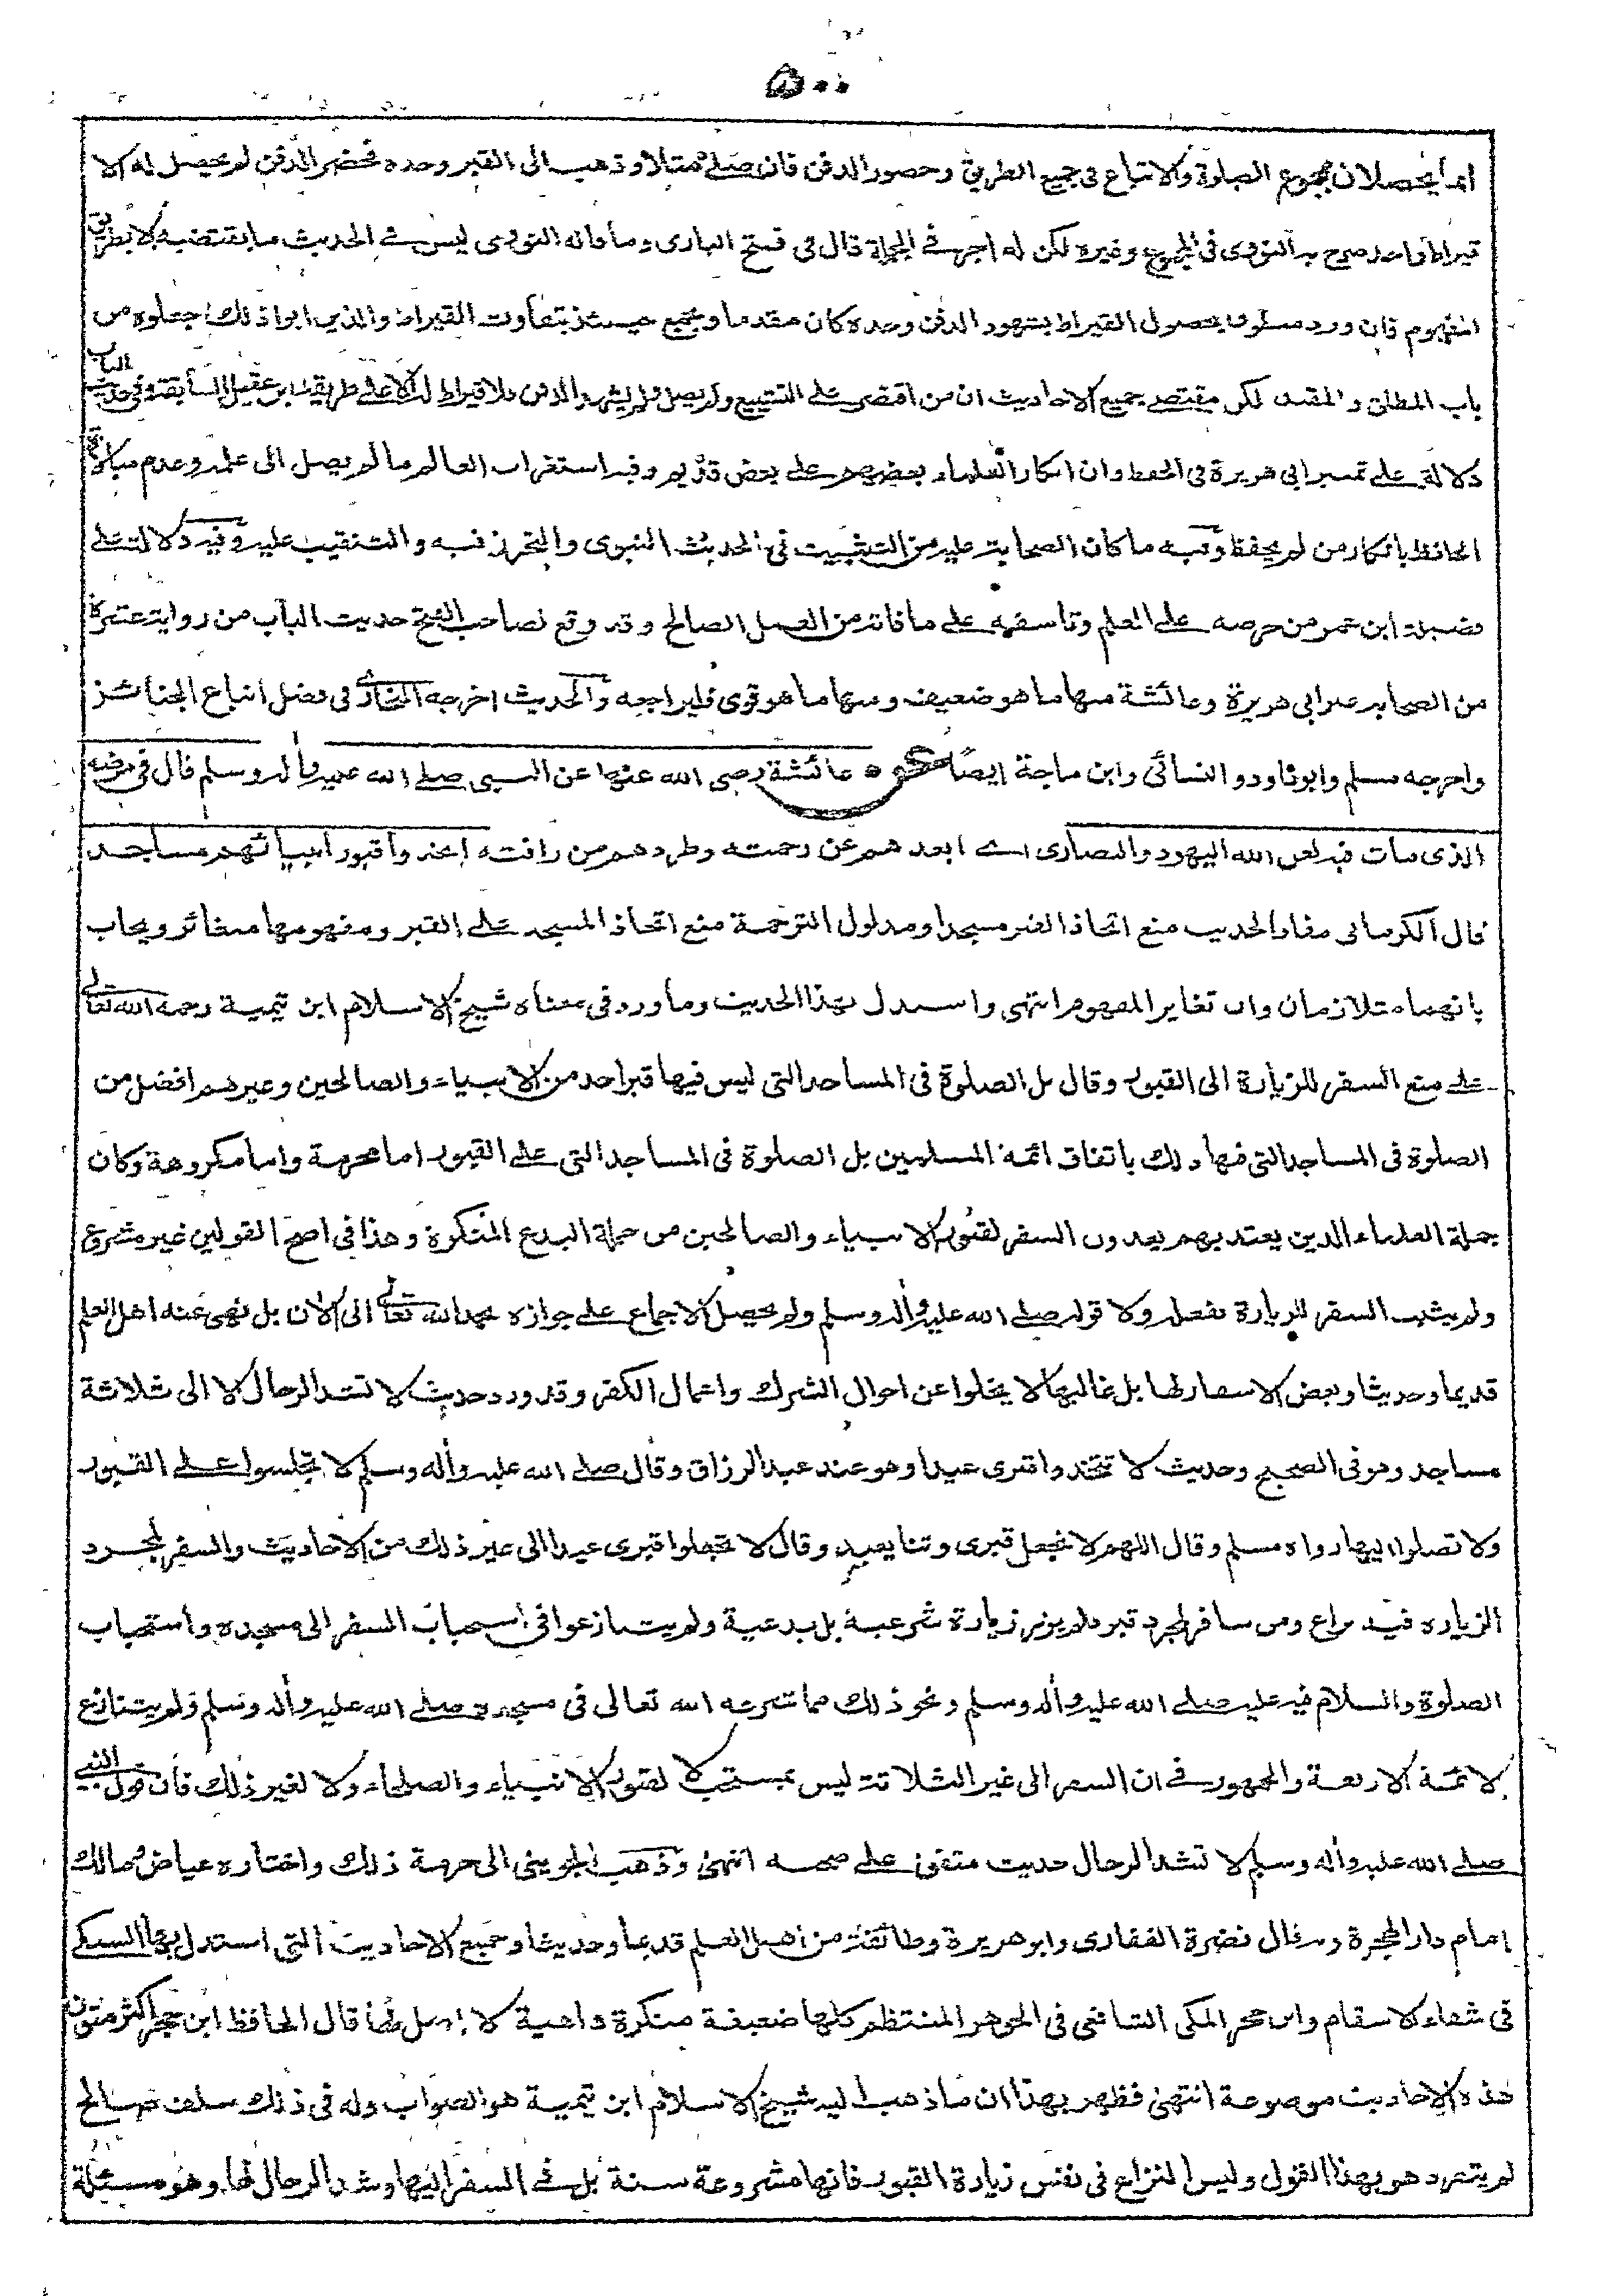 ٥٠٠
انما يحصلان بمجموع الصلوة والاتباع فى جميع الطريق وحضور الدفن فان صلى مثلا وذهب الى القبر وحده فحضر الدفن لم يحصل له الا
قيراط واحد صرح به النووى فى المجموع وغيره لكن له اجر فى الجملة قال فى فتح البارى وما قاله النووى ليس فى الحديث ما يقتضيه الا بطريق
المفهوم فان ورد منطوق بحصول القيراط بشهود الدفن وحده كان مقدما ويجمع حينئذ بتفاوت القيراط والذين ابوا ذلك جعلوه من
باب المطلق والمقيد لكن مقتضى جميع الاحاديث ان من اقتصر على التشييع ولم يصل ولم يشهد الدفن فلا قيراط له الا على طريقة ابن عقيل السابقة وفى حديث الباب
دلالة على تميز ابى هريرة فى الحفظ وان انكار العلماء بعضهم على بعض قديم وفيه استغراب العالم ما لم يصل الى علمه وعدم مبالاة
الحافظ بانكار من لم يحفظ وفيه ما كان الصحابة عليه من التثبيت فى الحديث النبوى والتحرز فيه والتنقيب عليه وفيه دلالة على
فضيلة ابن عمر من حرصه على العلم وتاسفه على ما فاته من العمل الصالح وقد وقع لصاحب الفتح حديث الباب من رواية عشرة
من الصحابة غير ابى هريرة وعائشة منها ما هو ضعيف ومنها ما هو قوى فليراجعه والحديث اخرجه البخارى فى فضل اتباع الجنائز
واخرجه مسلم وابوداود والنسائى وابن ماجة ايضا عائشة رضى الله عنها عن النبى صلى الله عليه وأله وسلم قال فى مرضه
الذى مات فيه لعن الله اليهود والنصارى اى ابعدهم عن رحمته وطردهم من رافته اتخذوا قبور انبيائهم مساجد
قال الكرمانى مفاد الحديث منع اتخاذ القبر مسجدا ومدلول الترجمة منع اتخاذ المسجد على القبر ومفهومها متغائر ويجاب
بانهما متلازمان وان تغاير المفهوم انتهى واستدل بهذا الحديث وما ورد فى معناه شيخ الاسلام ابن تيمية رحمه الله تعالى
على منع السفر للزيارة الى القبور وقال بل الصلوة فى المساجد التى ليس فيها قبر احد من الانبياء والصالحين وغيرهم افضل من
الصلوة فى المساجد التى فيها ذلك باتفاق ائمة المسلمين بل الصلوة فى المساجد التى على القبور اما محرمة واما مكروهة وكان
جملة العلماء الذين يعتد بهم يعدون السفر لقبور الانبياء والصالحين من جملة البدع المنكرة وهذا فى اصح القولين غير مشروع
ولم يثبت السفر للزيارة بفعله ولا قوله صلى الله عليه وأله وسلم ولم يحصل الاجماع على جوازه بحمد الله تعالى الى الأن بل نهى عنه اهل العلم
قديما وحديثا وبعض الاسفار لها بل غالبها لا يخلوا عن احوال الشرك واعمال الكفر وقد ورد حديث لا تشد الرحال الا الى ثلاثة
مساجد وهو فى الصحيح وحديث لا تتخذوا قبرى عيدا وهو عند عبد الرزاق وقال صلى الله عليه وأله وسلم لا تجلسوا على القبور
ولا تصلوا اليها رواه مسلم وقال اللهم لا تجعل قبرى وثنا يعبد وقال لا تجعلوا قبرى عيدا الى غير ذلك من الاحاديث والسفر لمجرد
الزياره فيه نزاع ومن سافر لمجرد قبر فلم يزر زيارة شرعية بل بدعية ولم يتنازعوا فى استحباب السفر الى مسجده واستحباب
الصلوة والسلام فيه عليه صلى الله عليه وأله وسلم ونحو ذلك مما شرعه الله تعالى فى مسجده صلى الله عليه وأله وسلم ولم يتنازع
الائمة الاربعة والجمهور فى ان السفر الى غير الثلاثة ليس بمستحب لا لقبور الانبياء والصلحاء ولا لغير ذلك فان قول النبى
صلى الله عليه وأله وسلم لا تشد الرحال حديث متفق على صحته انتهى وذهب الجوينى الى حرمة ذلك واختاره عياض ومالك
امام دار الهجرة وبه قال نضرة الغفارى وابو هريرة وطائفة من اهل العلم قديما وحديثا وجميع الاحاديث التى استدل بها السبكى
فى شفاء الاسقام وابن حجر المكى الشافعى فى الجوهر المنتظم كلها ضعيفة منكرة واهية لا اصل لها قال الحافظ ابن حجر اكثر متون
هذه الاحاديث موضوعة انتهى فظهر بهذا ان ما ذهب اليه شيخ الاسلام ابن تيمية هو الصواب وله فى ذلك سلف صالح
لم يتفرد هو بهذا القول وليس النزاع فى نفس زيارة القبور فانها مشروعة سنة بل فى السفر اليها وشد الرحال لها وهو مسئلة